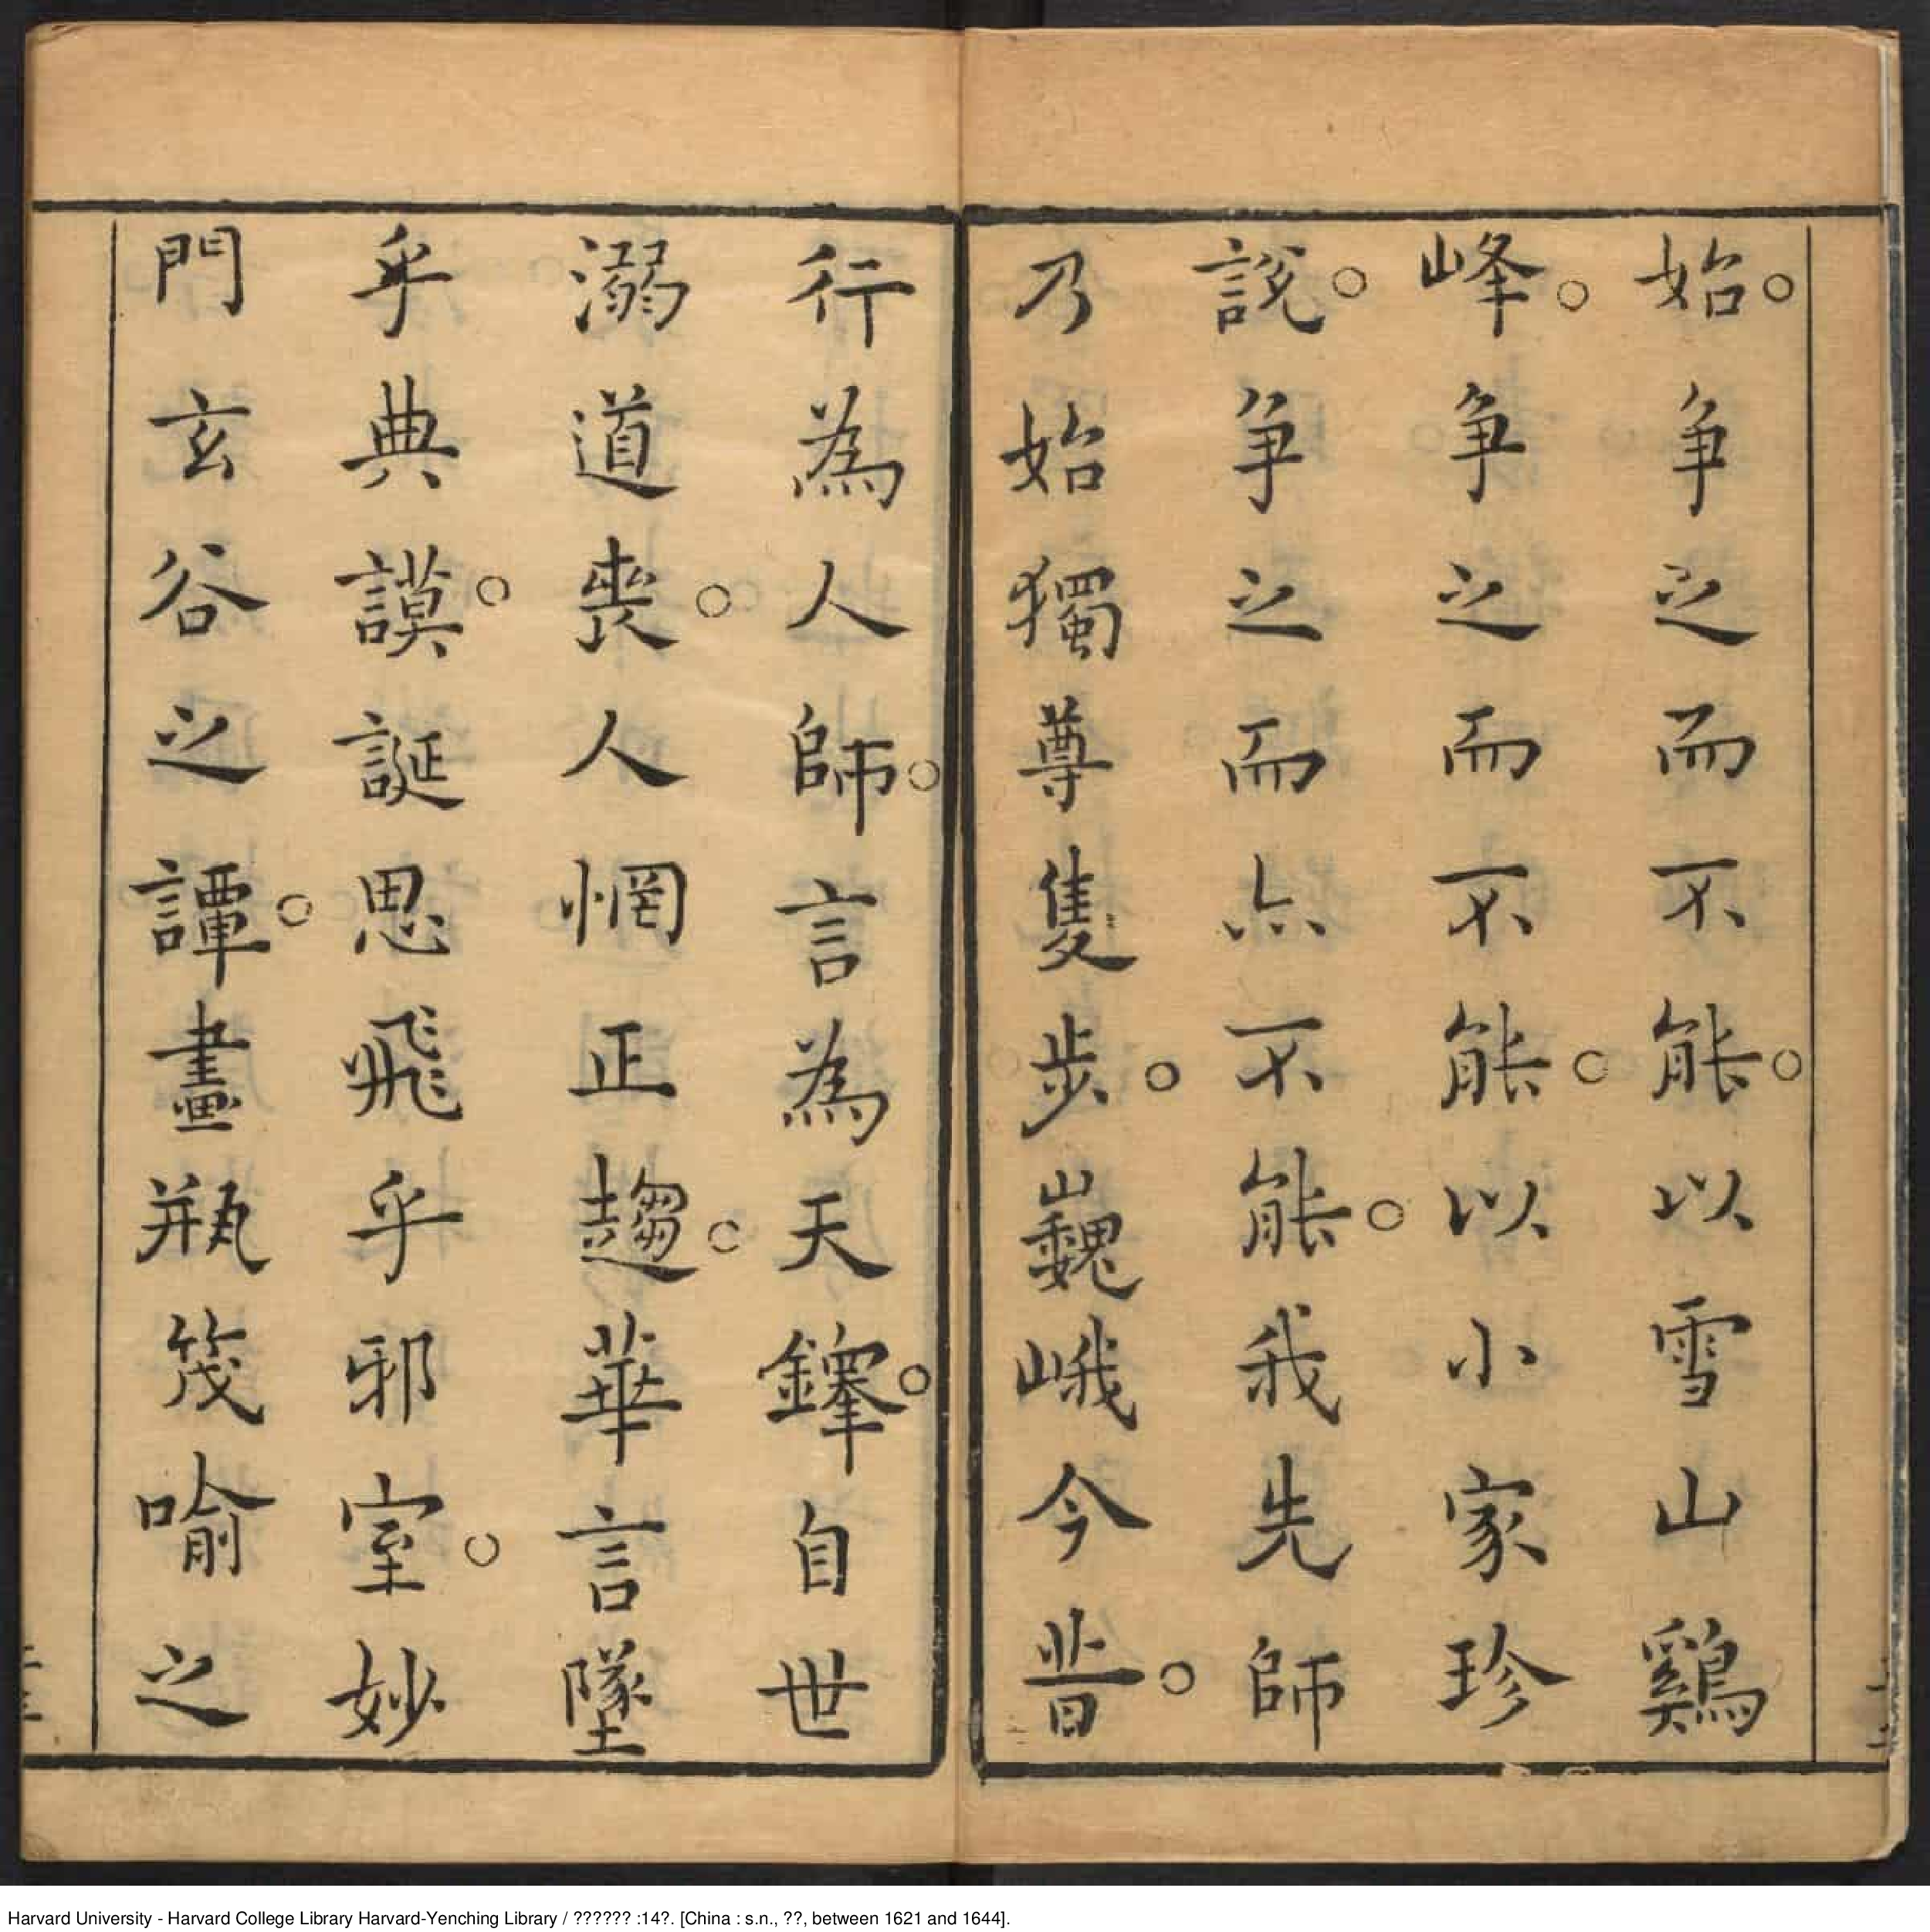 始。争之而不能。以雪山鷄
峰。争之而不能。以小家珍
說。争之而亦不能。我先師
乃始獨尊隻步。巍峨今昔。
行為人師。言為天鐸。自世
溺道喪。人惘正趨。華言墜
乎典謨。誕思飛乎邪室。妙
門玄谷之譚。畫瓶筏喻之
Harvard University - Harvard College Library Harvard-Yenching Library / ?????? :14?. [China : s.n., ??, between 1621 and 1644].